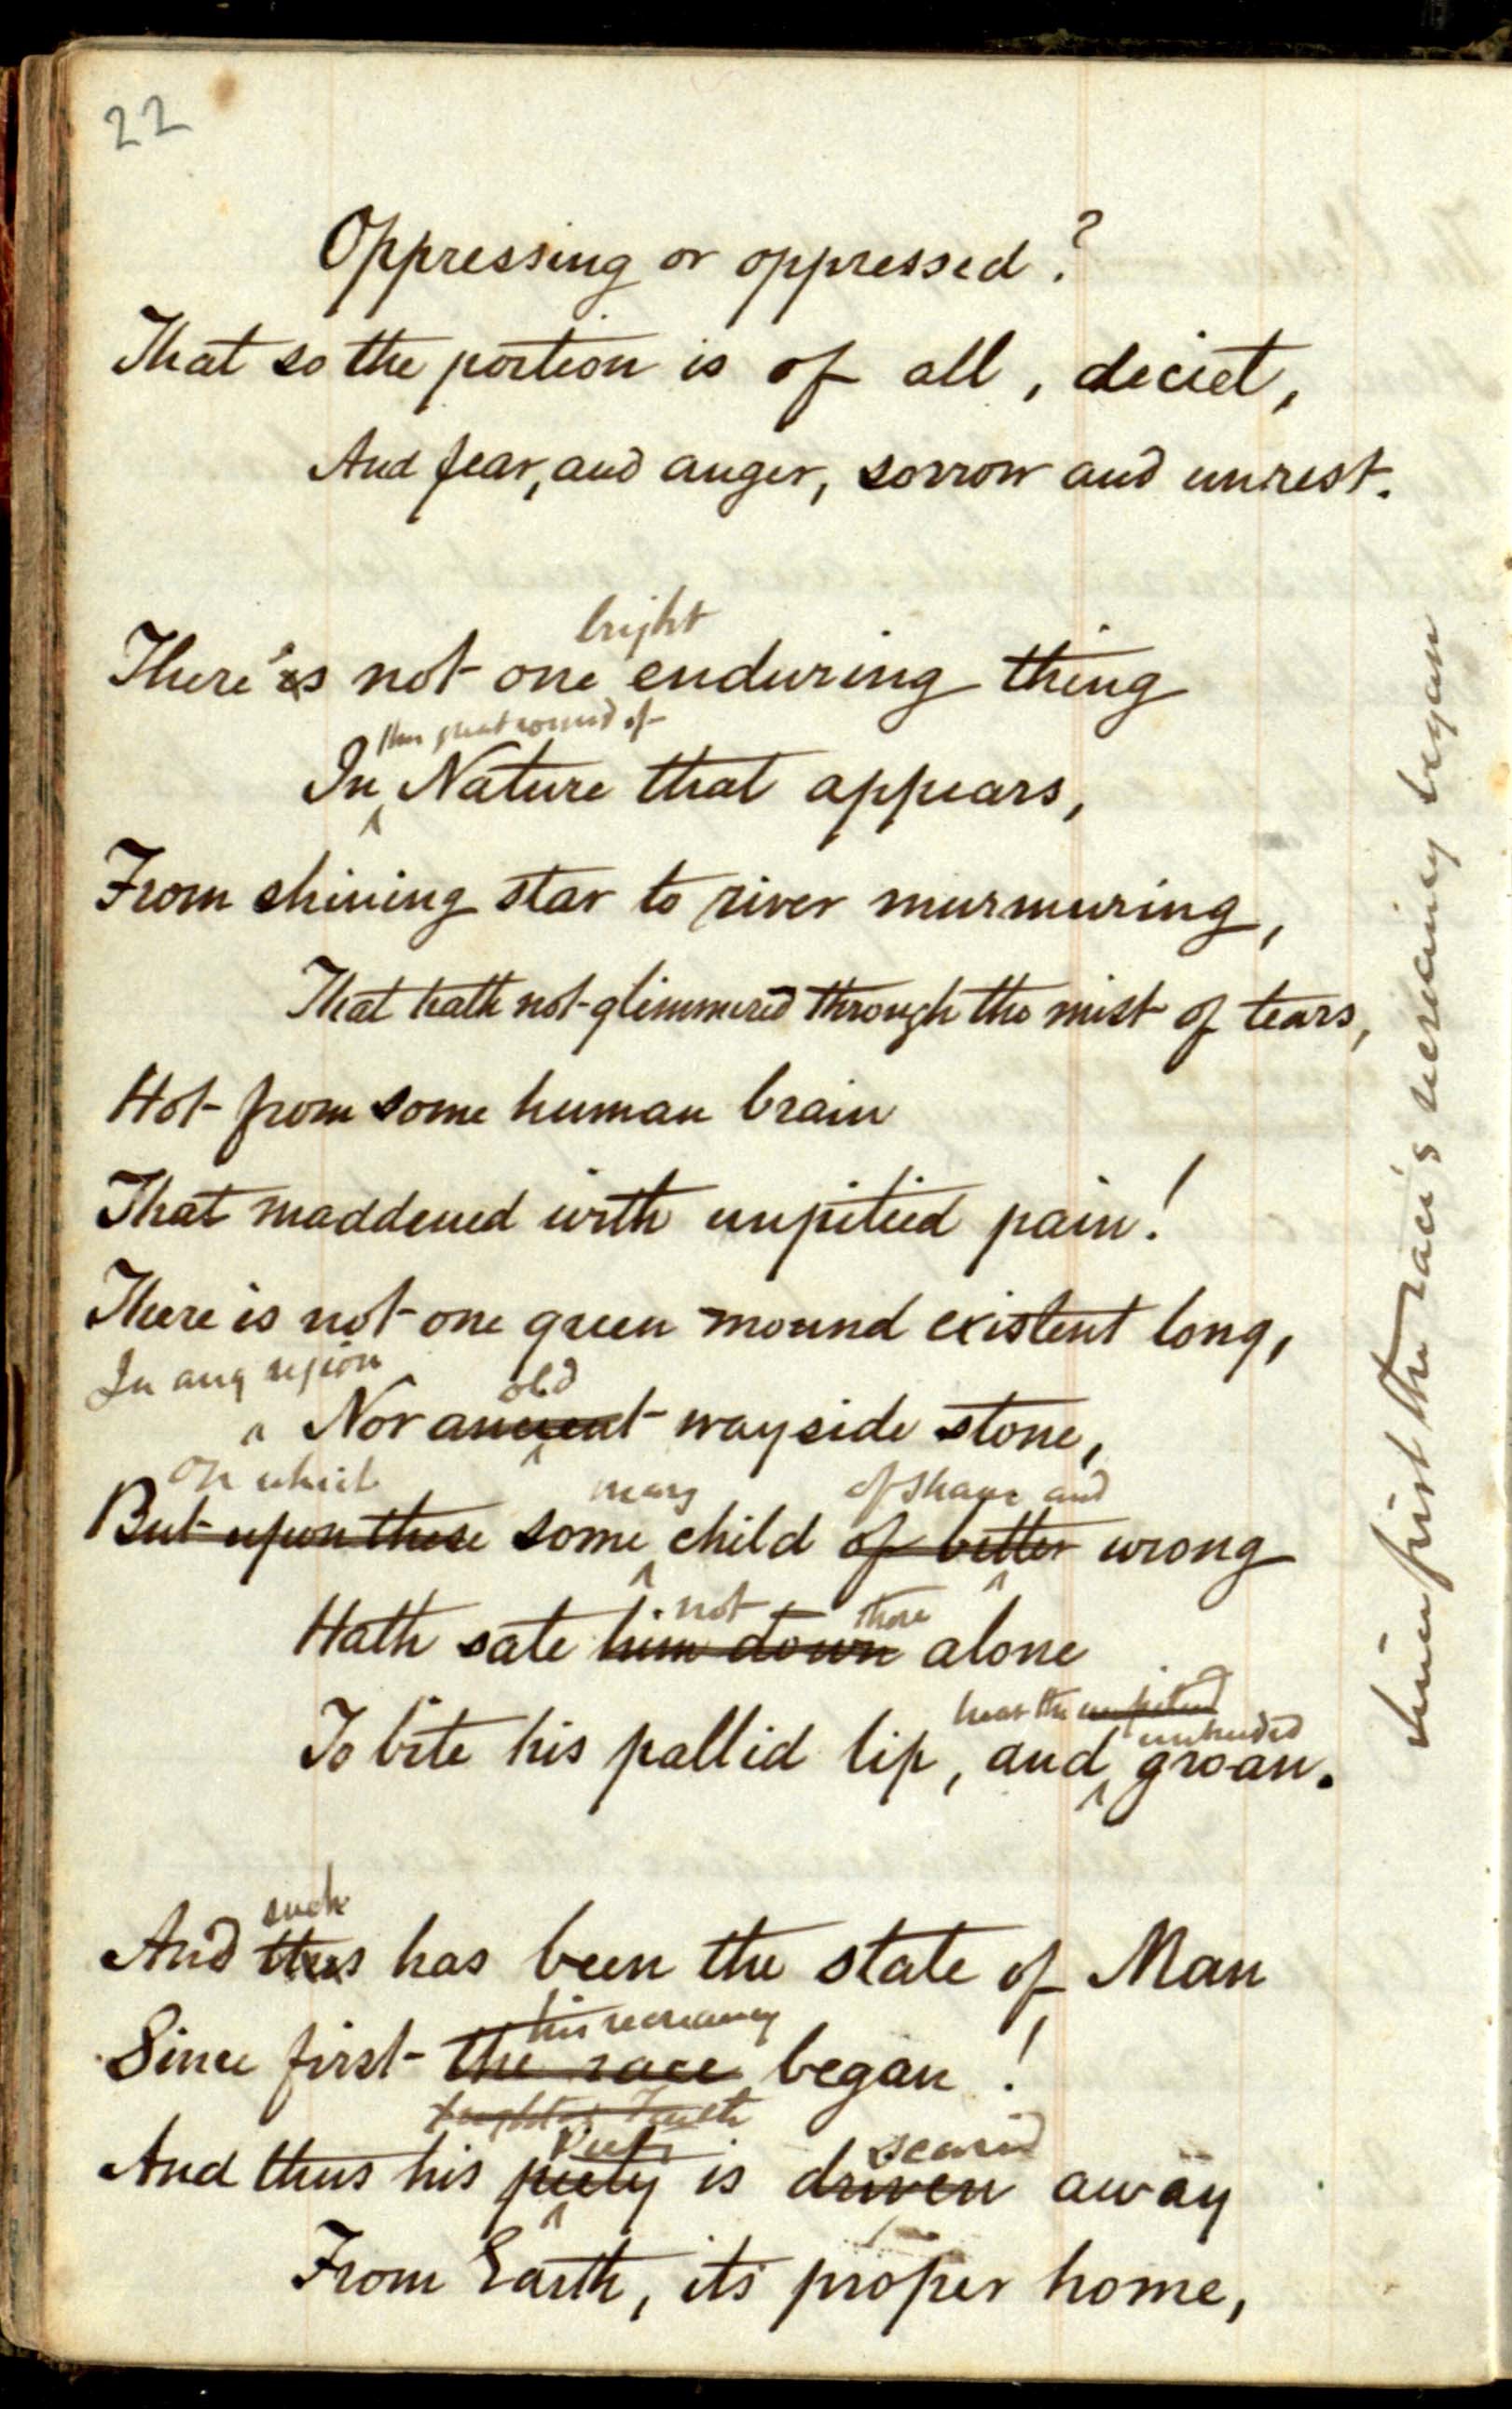 22
Oppressing or oppressed?
That so the portion is of all, deciet,
And fear, and anger, sorrow and unrest.
bright
There's not one enduring thing
this great round of
In Nature that appears,
From shining star to river murmuring,
That hath not glimmered through the mist of tears,
Hot from some human brain
That maddened with unpitied pain!
There is not one green mound existent long,
In any region
old
Nor ancient wayside stone,
On which many of shame and
But upon these some child of bitter wrong
not there
Hath sate him down alone
hear the unpitied
unheeded
To bite his pallid lip, and groan.
such
And thus has been the state of Man
his recreancy
Since first the race began!
Truth
Piety scared
And thus his piety is driven away
From Earth, its proper home,
since first the race's recreancy began